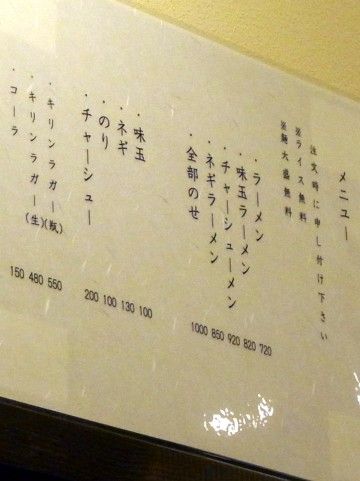 メニュー
注文時に申し付け下さい
※ライス無料
※麺大盛無料
・ラーメン 720
・味玉ラーメン 820
・チャーシューメン 920
・ネギラーメン 850
・全部のせ 1000
・味玉 100
・ネギ 130
・のり 100
・チャーシュー 200
・キリンラガー(瓶) 550
・キリンラガー(生) 480
・コーラ 150